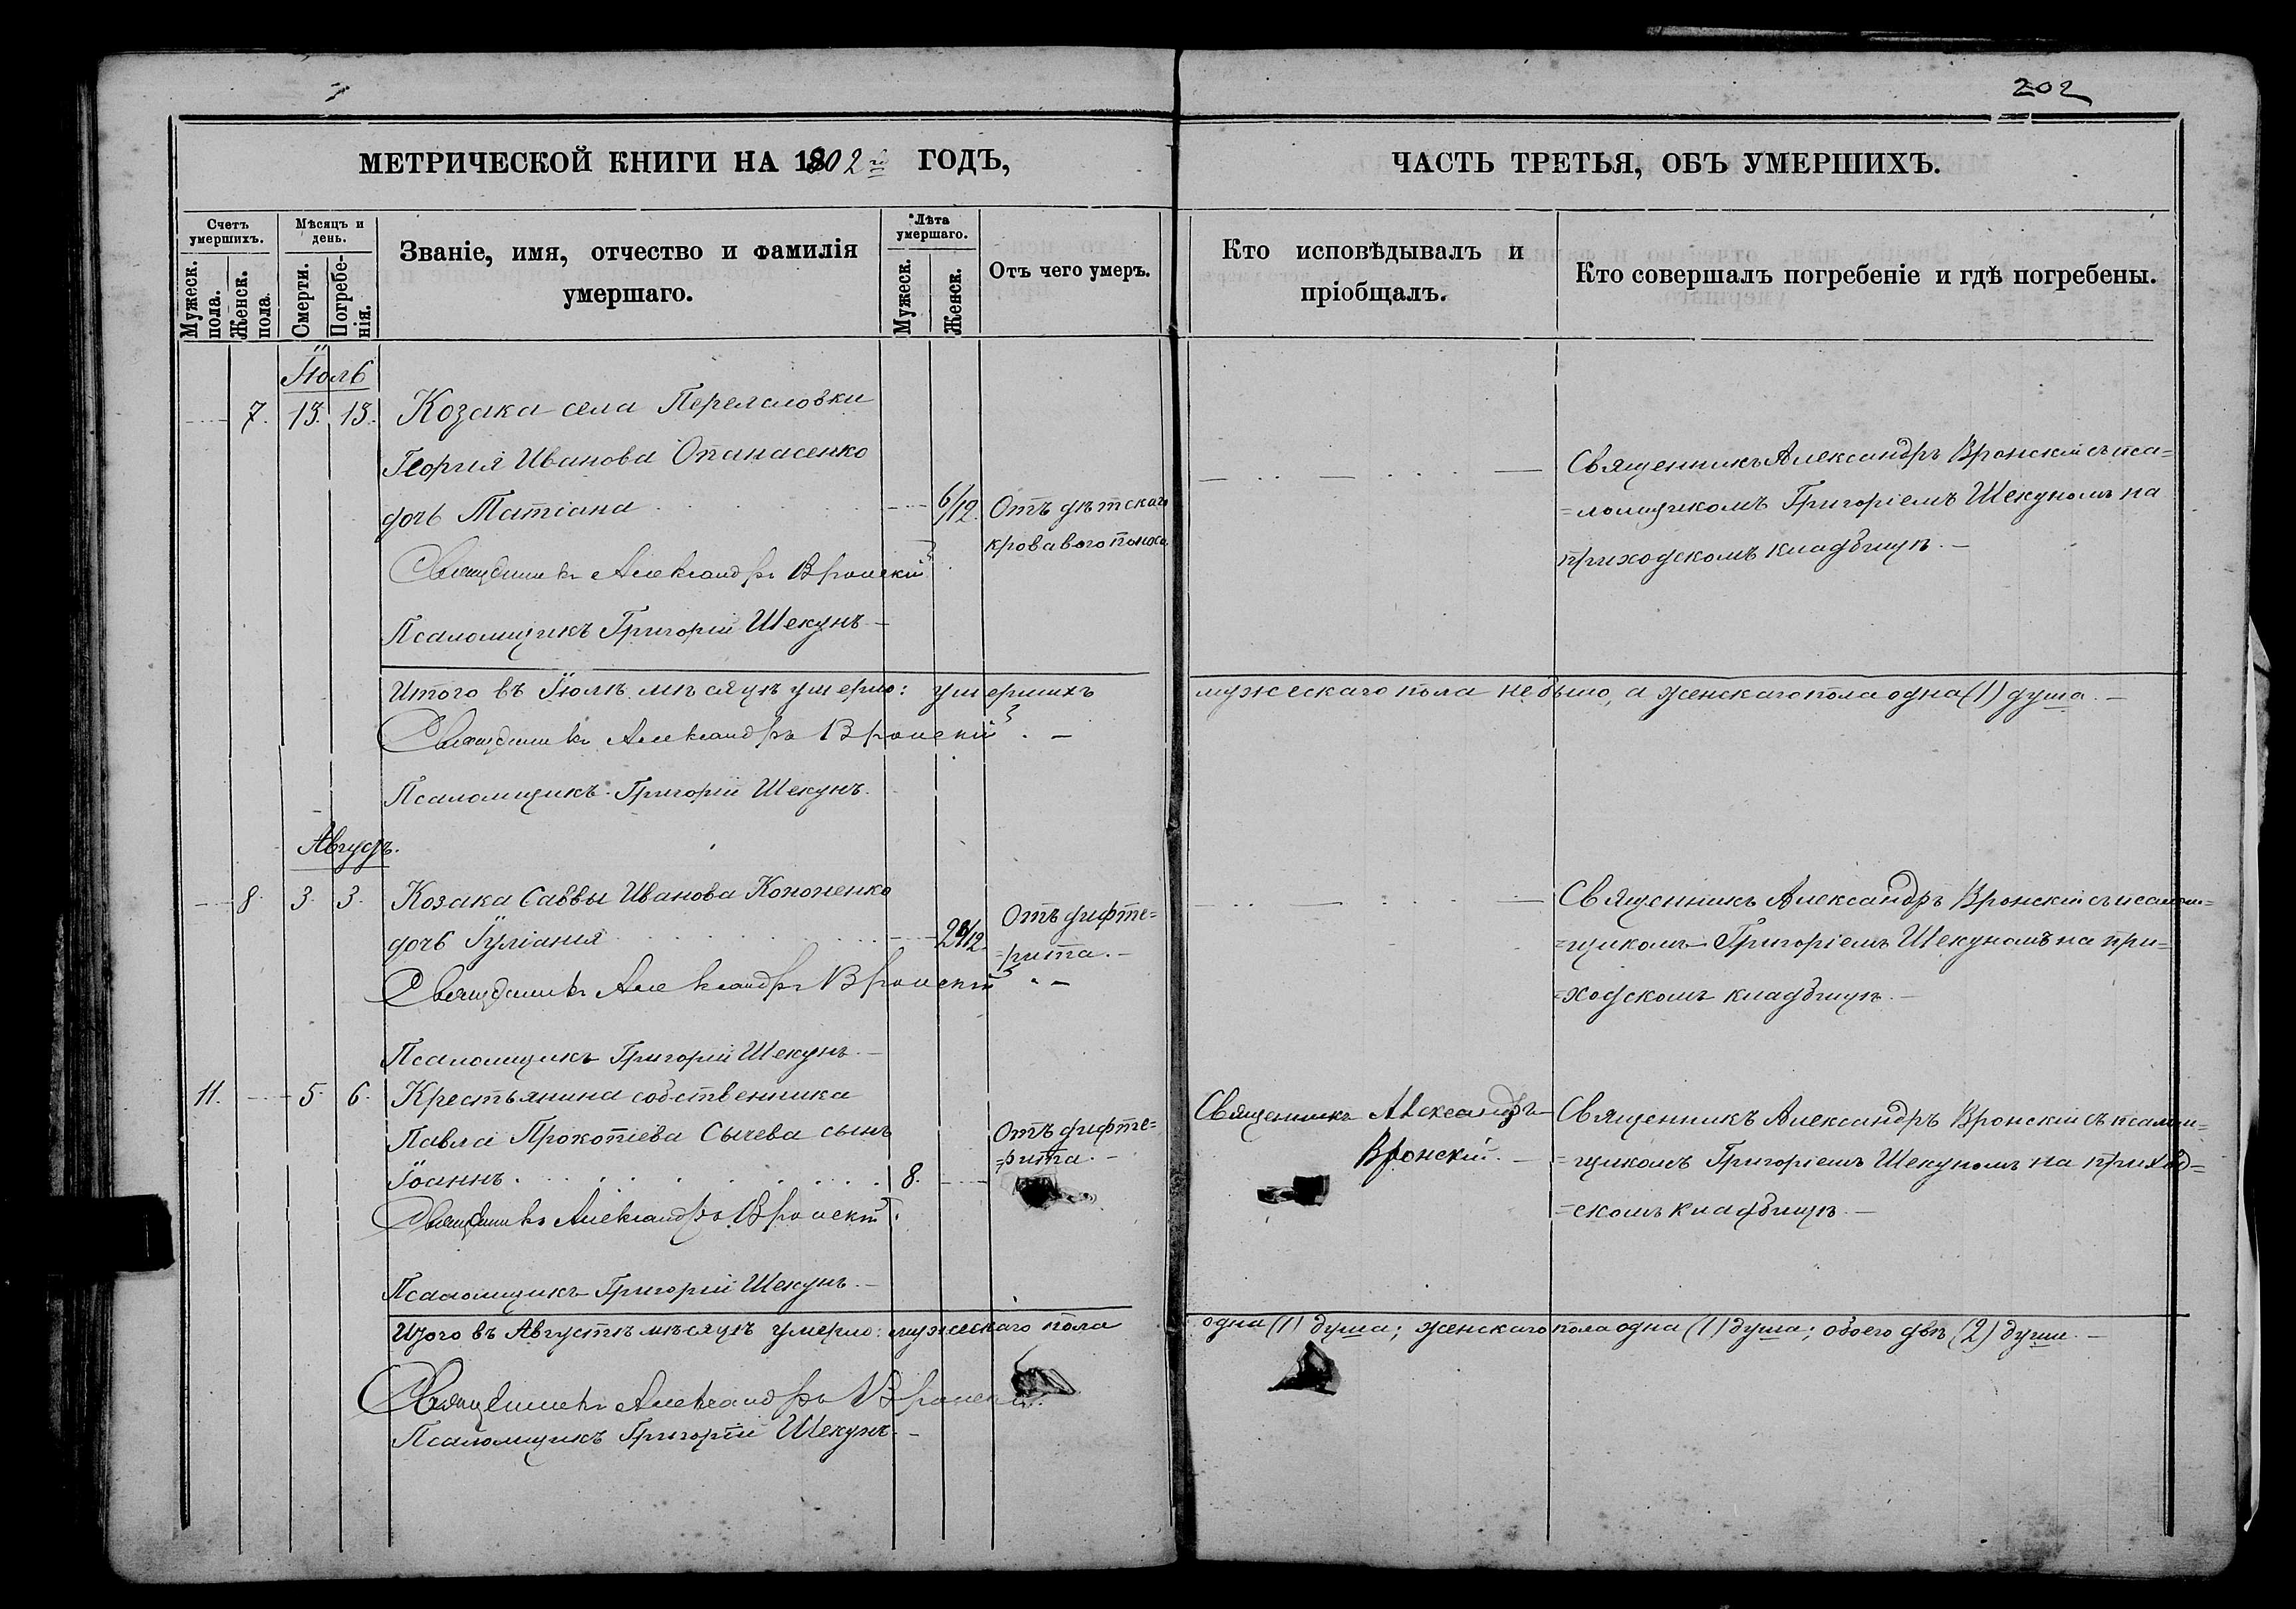 202
МЕТРИЧЕСКОЙ КНИГИ НА 1902 й ГОДЪ,
ЧАСТЬ ТРЕТЬЯ, ОБЪ УМЕРШИХЪ.
Счетъ умершихъ.
Мужеск. пола.
Женск. пола.
Мѣсяцъ и день.
Смерти.
Погребенія.
Званіе, имя, отчество и фамилія
умершаго.
Лѣта умершаго.
Мужеск.
Женск.
Отъ чего умеръ.
Кто исповѣдывалъ и
пріобщалъ.
Кто совершалъ погребеніе и гдѣ погребены.
Іюль
7. 13. 13. Козака села Переяславки
Георгія Иванова Опанасенко
дочь Татіана 6/12. Отъ дѣтскаго
кроваваго поноса.
Священникъ Александръ Вронскій съ пса=
=ломщикомъ Григоріемъ Шекуномъ на
приходскомъ кладбищѣ. —
Священникъ Александръ Вронскій
Псаломщикъ Григорій Шекунъ —
Итого въ Іюлѣ мѣсяцѣ умерло: умершихъ мужескаго пола не было, а женскаго пола одна (1) душа. —
Священникъ Александръ Вронскій. —
Псаломщикъ Григорій Шекунъ.
Августъ.
8. 3. 3. Козака Саввы Иванова Кононенко
дочь Іуліанія Отъ дифте=
=рита. —
Священникъ Александръ Вронскій съ псалом=
=щикомъ Григоріемъ Шекуномъ на при=
=ходскомъ кладбищѣ. —
Священникъ Александръ Вронскій. —
Псаломщикъ Григорій Шекунъ. —
11. 5. 6. Крестьянина собственника
Павла Прокопіева Сычева сынъ
Іоаннъ 8. Отъ дифте=
=рита. —
Священникъ Александръ
Вронскій. —
Священникъ Александръ Вронскій съ псалом=
=щикомъ Григоріемъ Шекуномъ на приход=
=скомъ кладбищѣ —
Священникъ Александръ Вронскій.
Псаломщикъ Григорій Шекунъ. —
Итого въ Августѣ мѣсяцѣ умерло: мужескаго пола одна (1) душа; женскаго пола одна (1) душа; обоего двѣ (2) души. —
Священникъ Александръ Вронскій.
Псаломщикъ Григорій Шекунъ. —